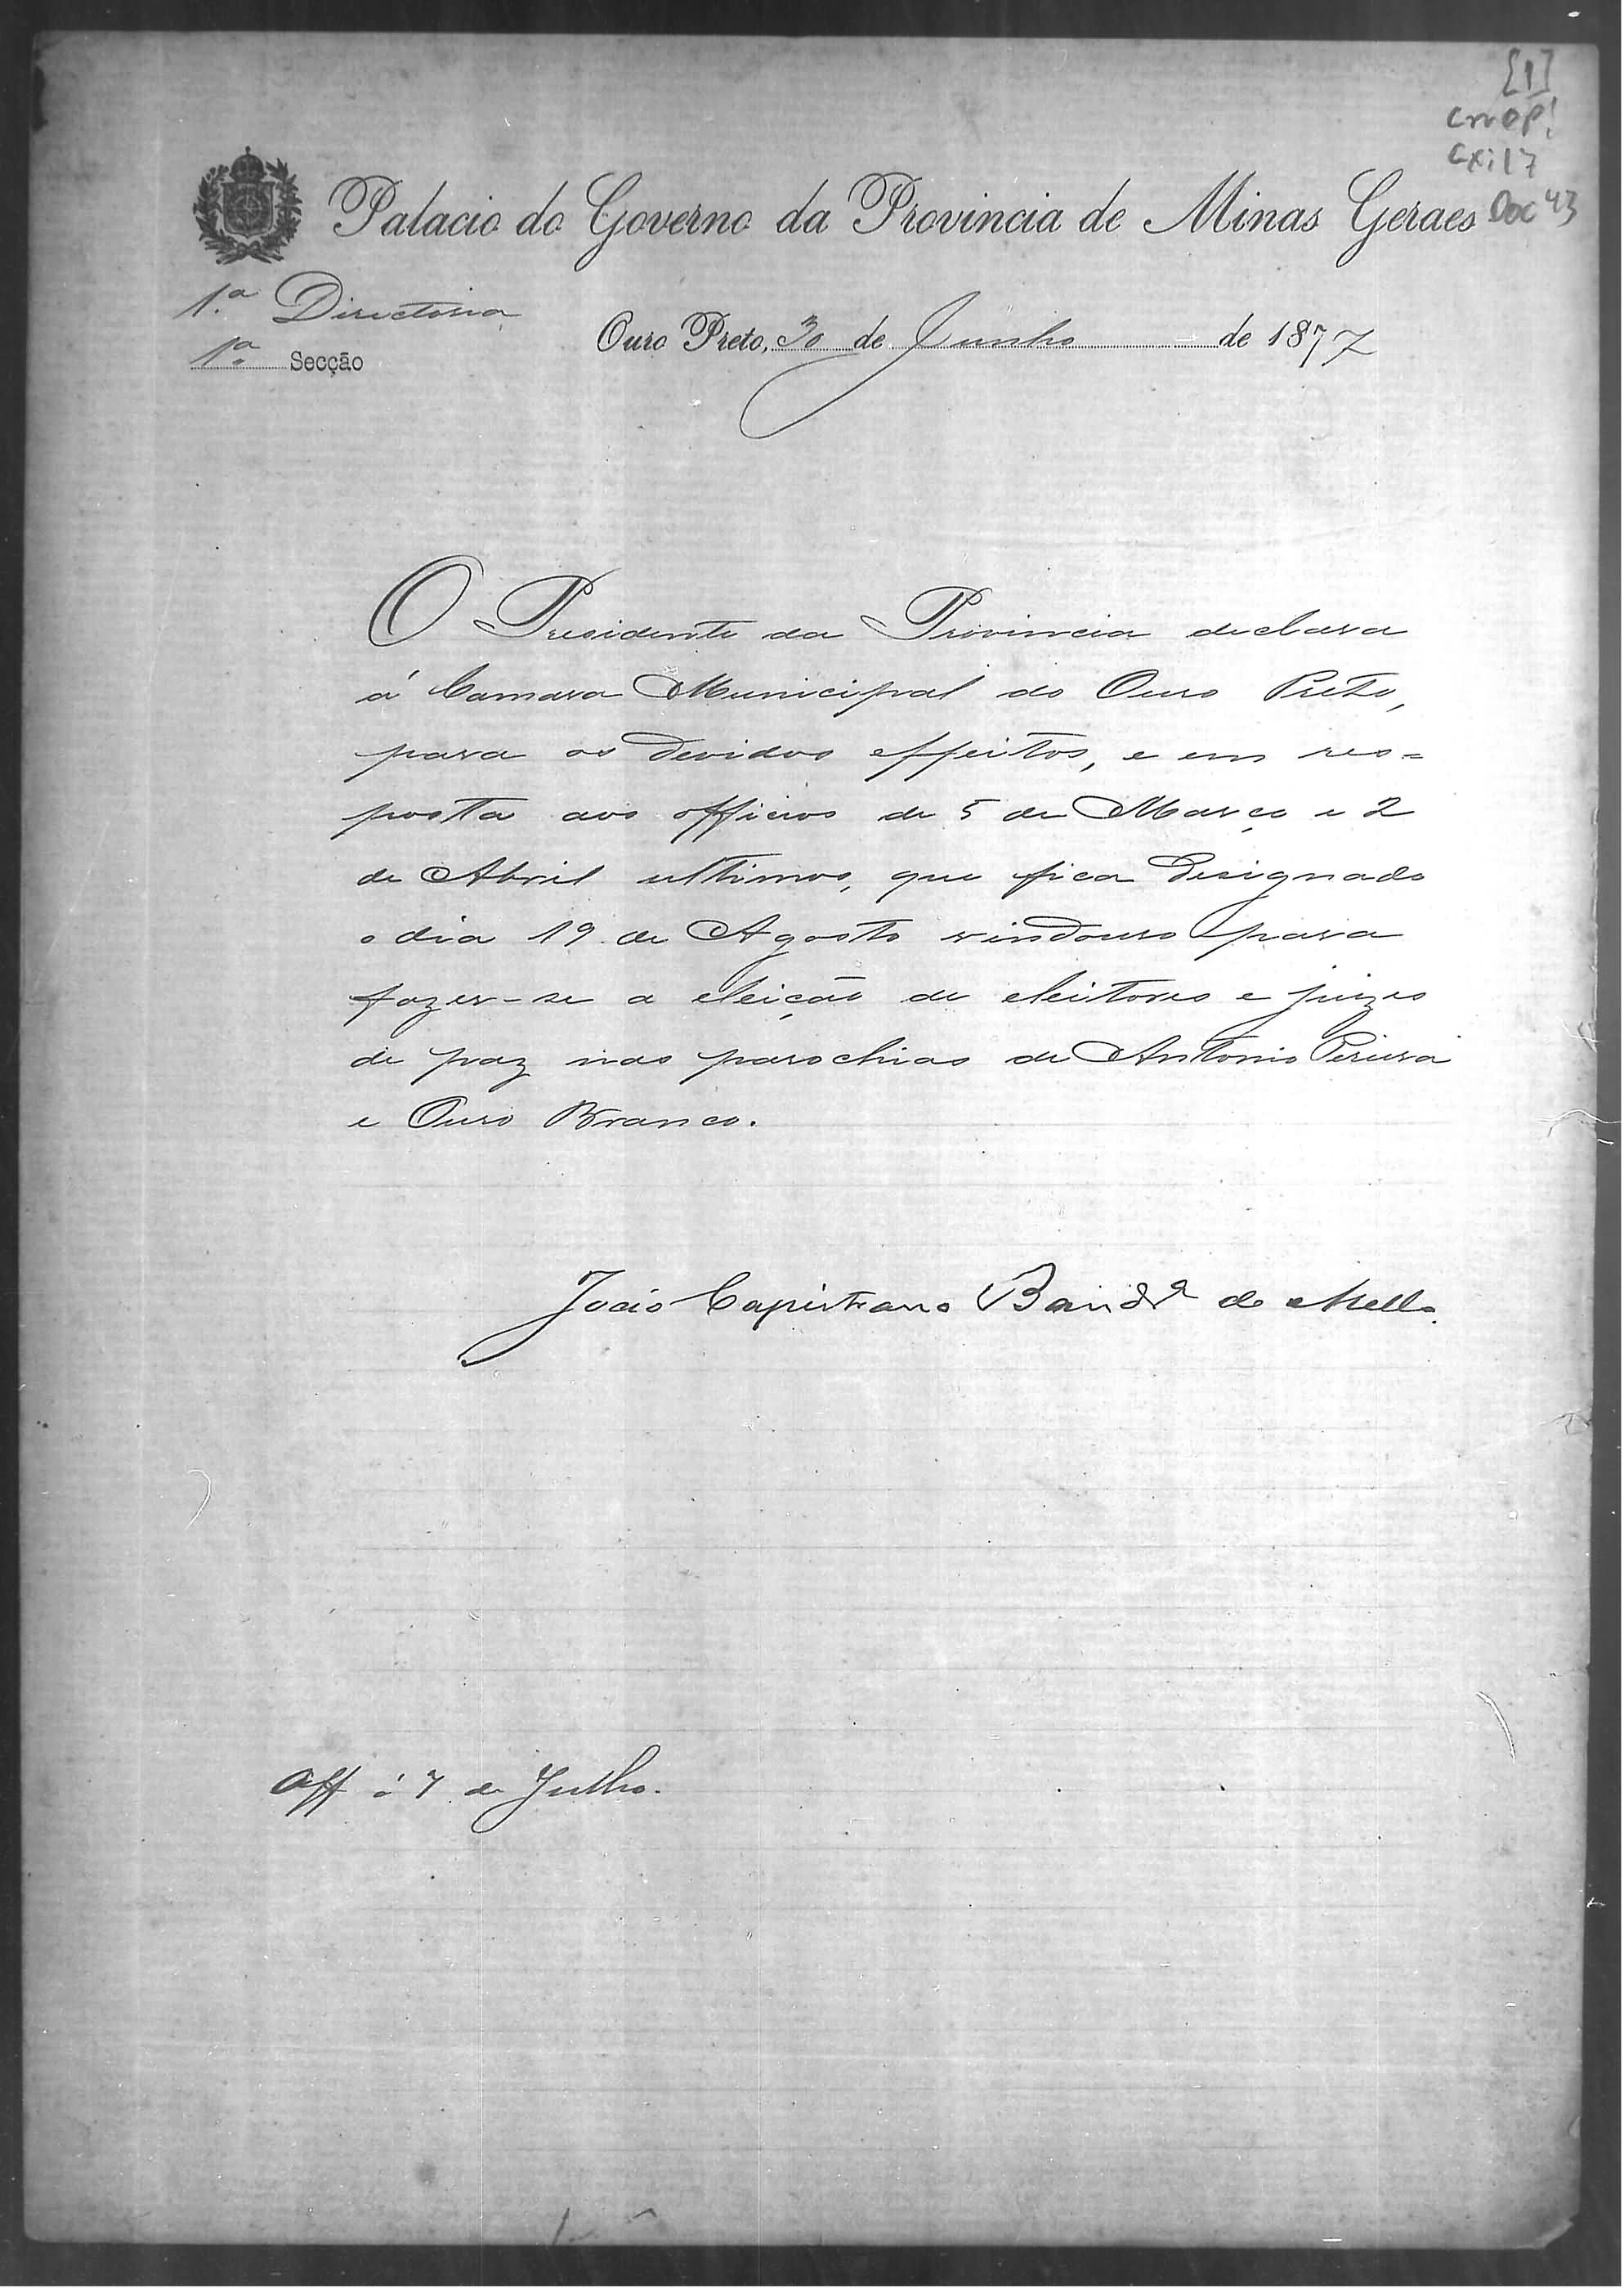 [1]
CMOP!
Cxi17
Doc 43
Palacio do Governo da Provincia de Minas Geraes
1.ª Directoria
1ª Secção
Ouro Preto, 30 de Junho de 1877
O Presidente da Provincia declara
á Camara Municipal do Ouro Preto,
para os devidos effeitos, e em res=
posta aos officios de 5 de Março e 2
de Abril ultimos, que fica designado
o dia 19 de Agosto vindouro para
fazer-se a eleição de eleitores e juizes
de paz nas parochias de Antonio Pereira
e Ouro Branco.
João Capistrano Band.ª de Mello.
Off á 7 de Julho.